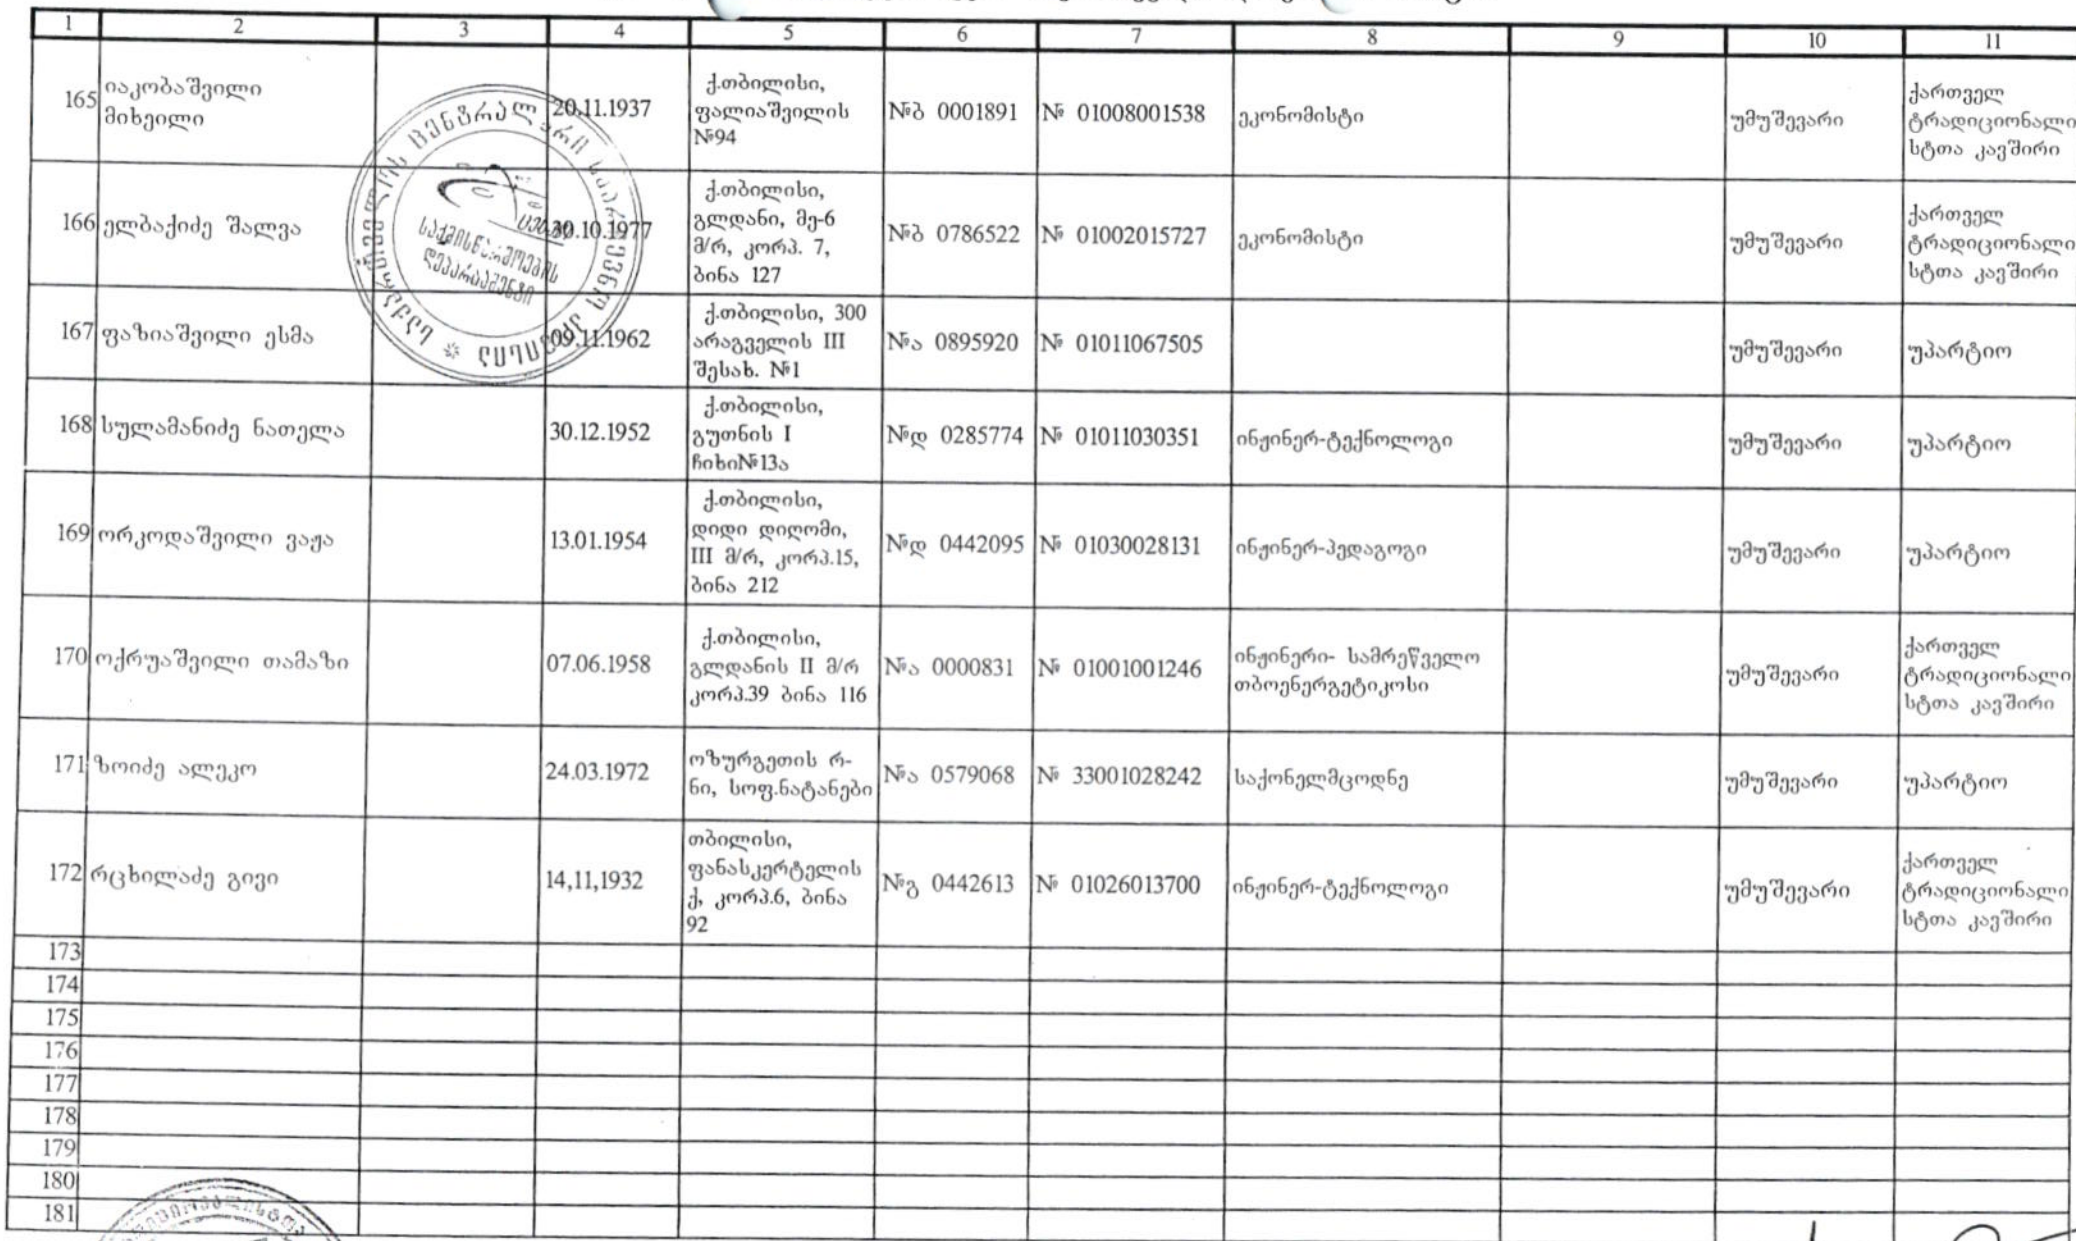 1 2 3 4 5 6 7 8 9 10 11
165 იაკობაშვილი მიხეილი 20.11.1937 ქ.თბილისი, ფალიაშვილის №94 №ბ 0001891 № 01008001538 ეკონომისტი უმუშევარი ქართველ ტრადიციონალისტთა კავშირი
166 ელბაქიძე შალვა 30.10.1977 ქ.თბილისი, გლდანი, მე-6 მ/რ, კორპ. 7, ბინა 127 №ბ 0786522 № 01002015727 ეკონომისტი უმუშევარი ქართველ ტრადიციონალისტთა კავშირი
167 ფაზიაშვილი ესმა 09.11.1962 ქ.თბილისი, 300 არაგველის III შესახ. №1 №ა 0895920 № 01011067505 უმუშევარი უპარტიო
168 სულამანიძე ნათელა 30.12.1952 ქ.თბილისი, გუთნის I ჩიხი№13ა №დ 0285774 № 01011030351 ინჟინერ-ტექნოლოგი უმუშევარი უპარტიო
169 ორკოდაშვილი ვაჟა 13.01.1954 ქ.თბილისი, დიდი დიღომი, III მ/რ, კორპ.15, ბინა 212 №დ 0442095 № 01030028131 ინჟინერ-პედაგოგი უმუშევარი უპარტიო
170 ოქრუაშვილი თამაზი 07.06.1958 ქ.თბილისი, გლდანის II მ/რ კორპ.39 ბინა 116 №ა 0000831 № 01001001246 ინჟინერი- სამრეწველო თბოენერგეტიკოსი უმუშევარი ქართველ ტრადიციონალისტთა კავშირი
171 ზოიძე ალეკო 24.03.1972 ოზურგეთის რ-ნი, სოფ.ნატანები №ა 0579068 № 33001028242 საქონელმცოდნე უმუშევარი უპარტიო
172 რცხილაძე გივი 14,11,1932 თბილისი, ფანასკერტელის ქ, კორპ.6, ბინა 92 №გ 0442613 № 01026013700 ინჟინერ-ტექნოლოგი უმუშევარი ქართველ ტრადიციონალისტთა კავშირი
173
174
175
176
177
178
179
180
181
საქმისწარმოების
დეპარტამენტი